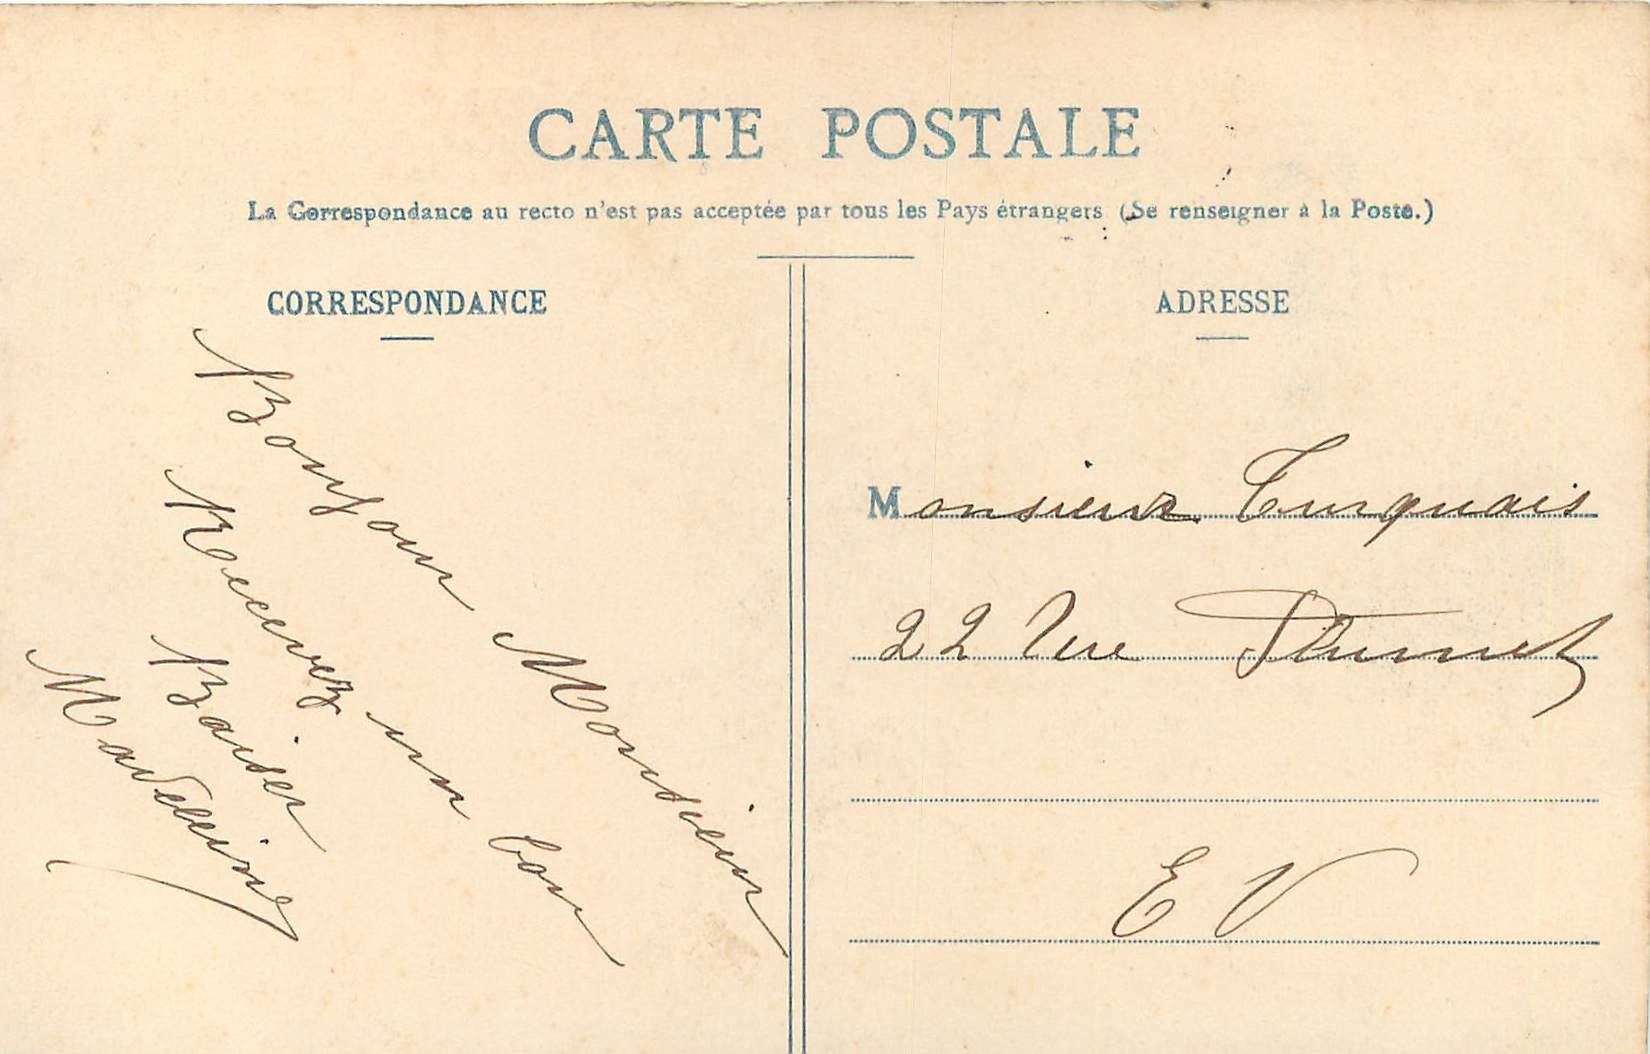 CARTE POSTALE
La Correspondance au recto n'est pas acceptée par tous les Pays étrangers (Se renseigner à la Poste.)
CORRESPONDANCE
Bonjour Monsieur
Recevez un bon
Baiser
Madeleine
ADRESSE
Monsieur Turquais
22 Rue Plumet
E V